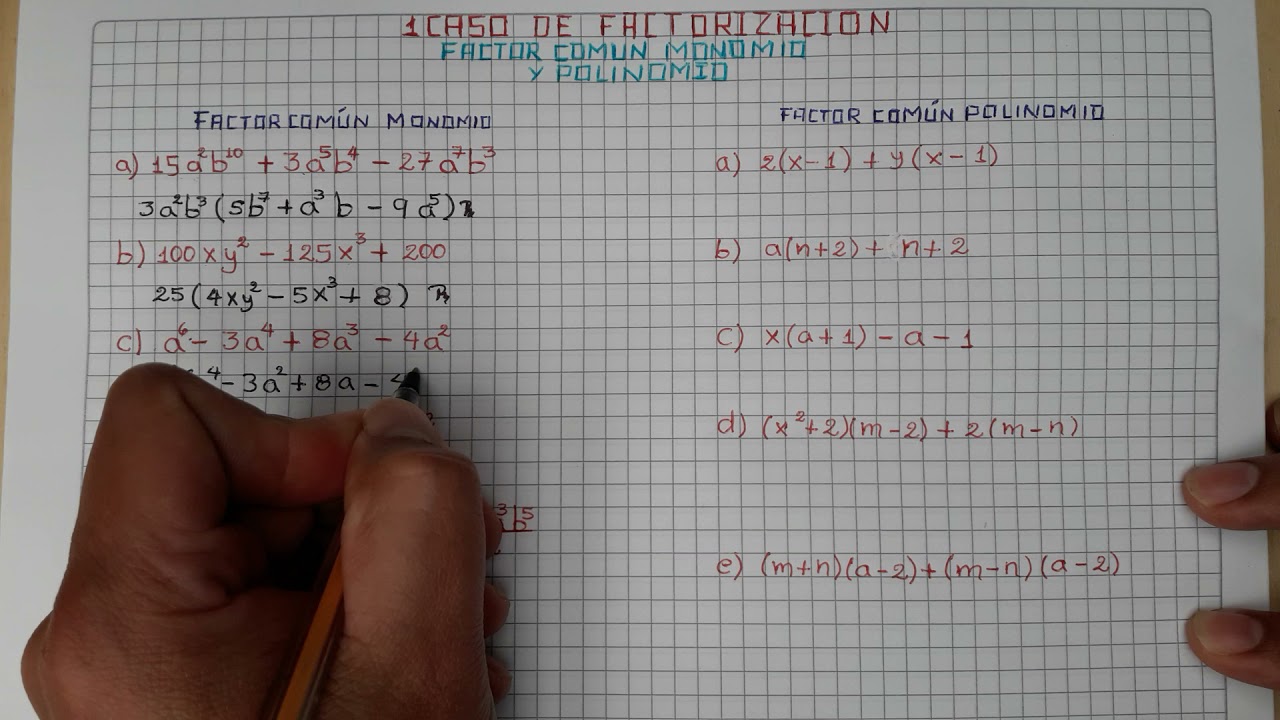 1 CASO DE FACTORIZACION
FACTOR COMUN MONOMIO
Y POLINOMIO
FACTOR COMÚN MONOMIO
a) 15a²b¹⁰ + 3a⁵b⁴ - 27a⁷b³
3a²b³(5b⁷ + a³b - 9a⁵) R
b) 100xy² - 125x³ + 200
25(4xy² - 5x³ + 8) R
c) a⁶ - 3a⁴ + 8a³ - 4a²
⁴ - 3a² + 8a - 4
b⁵
FACTOR COMÚN POLINOMIO
a) 2(x-1) + y(x-1)
b) a(n+2) + n+2
c) x(a+1) - a - 1
d) (x²+2)(m-2) + 2(m-n)
e) (m+n)(a-2)+(m-n)(a-2)